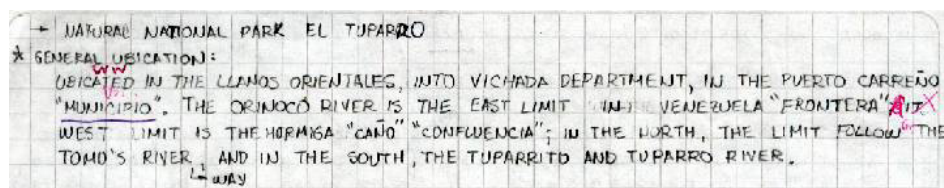 → NATURAL NATIONAL PARK EL TUPARRO
* GENERAL UBICATION:
WW
UBICATED IN THE LLANOS ORIENTALES, INTO VICHADA DEPARTMENT, IN THE PUERTO CARREÑO
"MUNICIPIO". THE ORINOCO RIVER IS THE EAST LIMIT IN VENEZUELA "FRONTERA" IT X
WEST LIMIT IS THE HORMIGA "CAÑO" "CONFLUENCIA"; IN THE NORTH, THE LIMIT FOLLOW THE
TOMO'S RIVER, AND IN THE SOUTH, THE TUPARRITO AND TUPARRO RIVER.
WAY